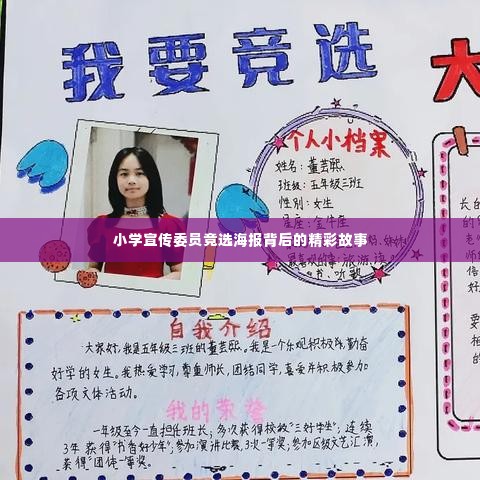 我要竞选
大
个人小档案
姓名：董芸熙
班级：五年级三班
性别：女生
星座：金牛座
小学宣传委员竞选海报背后的精彩故事
书、听歌
自我介绍
大家好，我是五年级三班的董芸熙。我是一个乐观积极向上、勤奋
好学的女生。我热爱学习，尊重师长，团结同学，喜爱并积极参加
各项文体活动。
我的荣誉
一年级至今一直担任班长；多次获得校级“三好学生”；连续
3年获得“书香好少年”；参加演讲比赛，3次一等奖；参加区级文艺汇演，
获得“团体一等奖。
长的
的
老
师
好
要
相
的